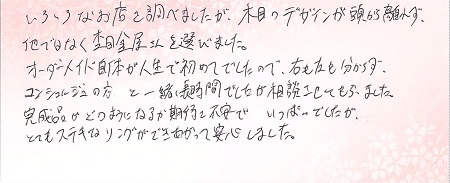 いろいろなお店を調べましたが、木目のデザインが頭から離れず、
他ではなく杢目金屋さんを選びました。
オーダーメイド自体が人生で初めてでしたので、右も左も分からず、
コンシェルジュの方と一緒に長時間でしたが相談させてもらいました。
完成品がどのようになるか期待と不安でいっぱいでしたが、
とてもステキなリングができあがって安心しました。